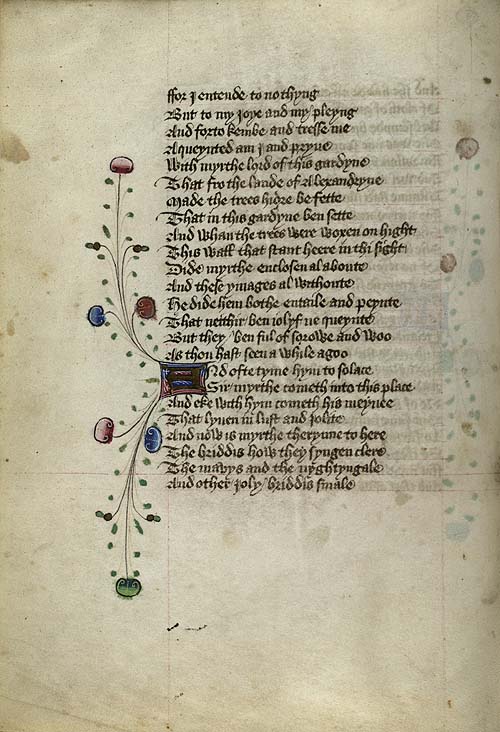 ffor I entende to no thyng
But to my Joye and my pleyng
And forto kembe and tresse me
Aqueynted am I and pryue
With myrthe lord of this gardyne
That fro the lande of Alexandryne
Made the trees hidre be fette
That in this gardyne ben sette
And whan the trees were woxen on hight
This wall that stant heere in thi sight
Dide myrthe enclosen al aboute
And these ymages al withoute
He dide hem bothe entaile and peynte
That neithir ben iolyf ne queynte
But they ben ful of sorowe and woo
As thou hast seen a while agoo
And ofte tyme hym to solace
Sir myrthe cometh into this place
And eke with hym cometh his meynee
That lyuen in lust and Jolite
And now is myrthe therynne to here
The briddis how they syngen clere
The mavys and the nyghtyngale
And other Joly briddis smale